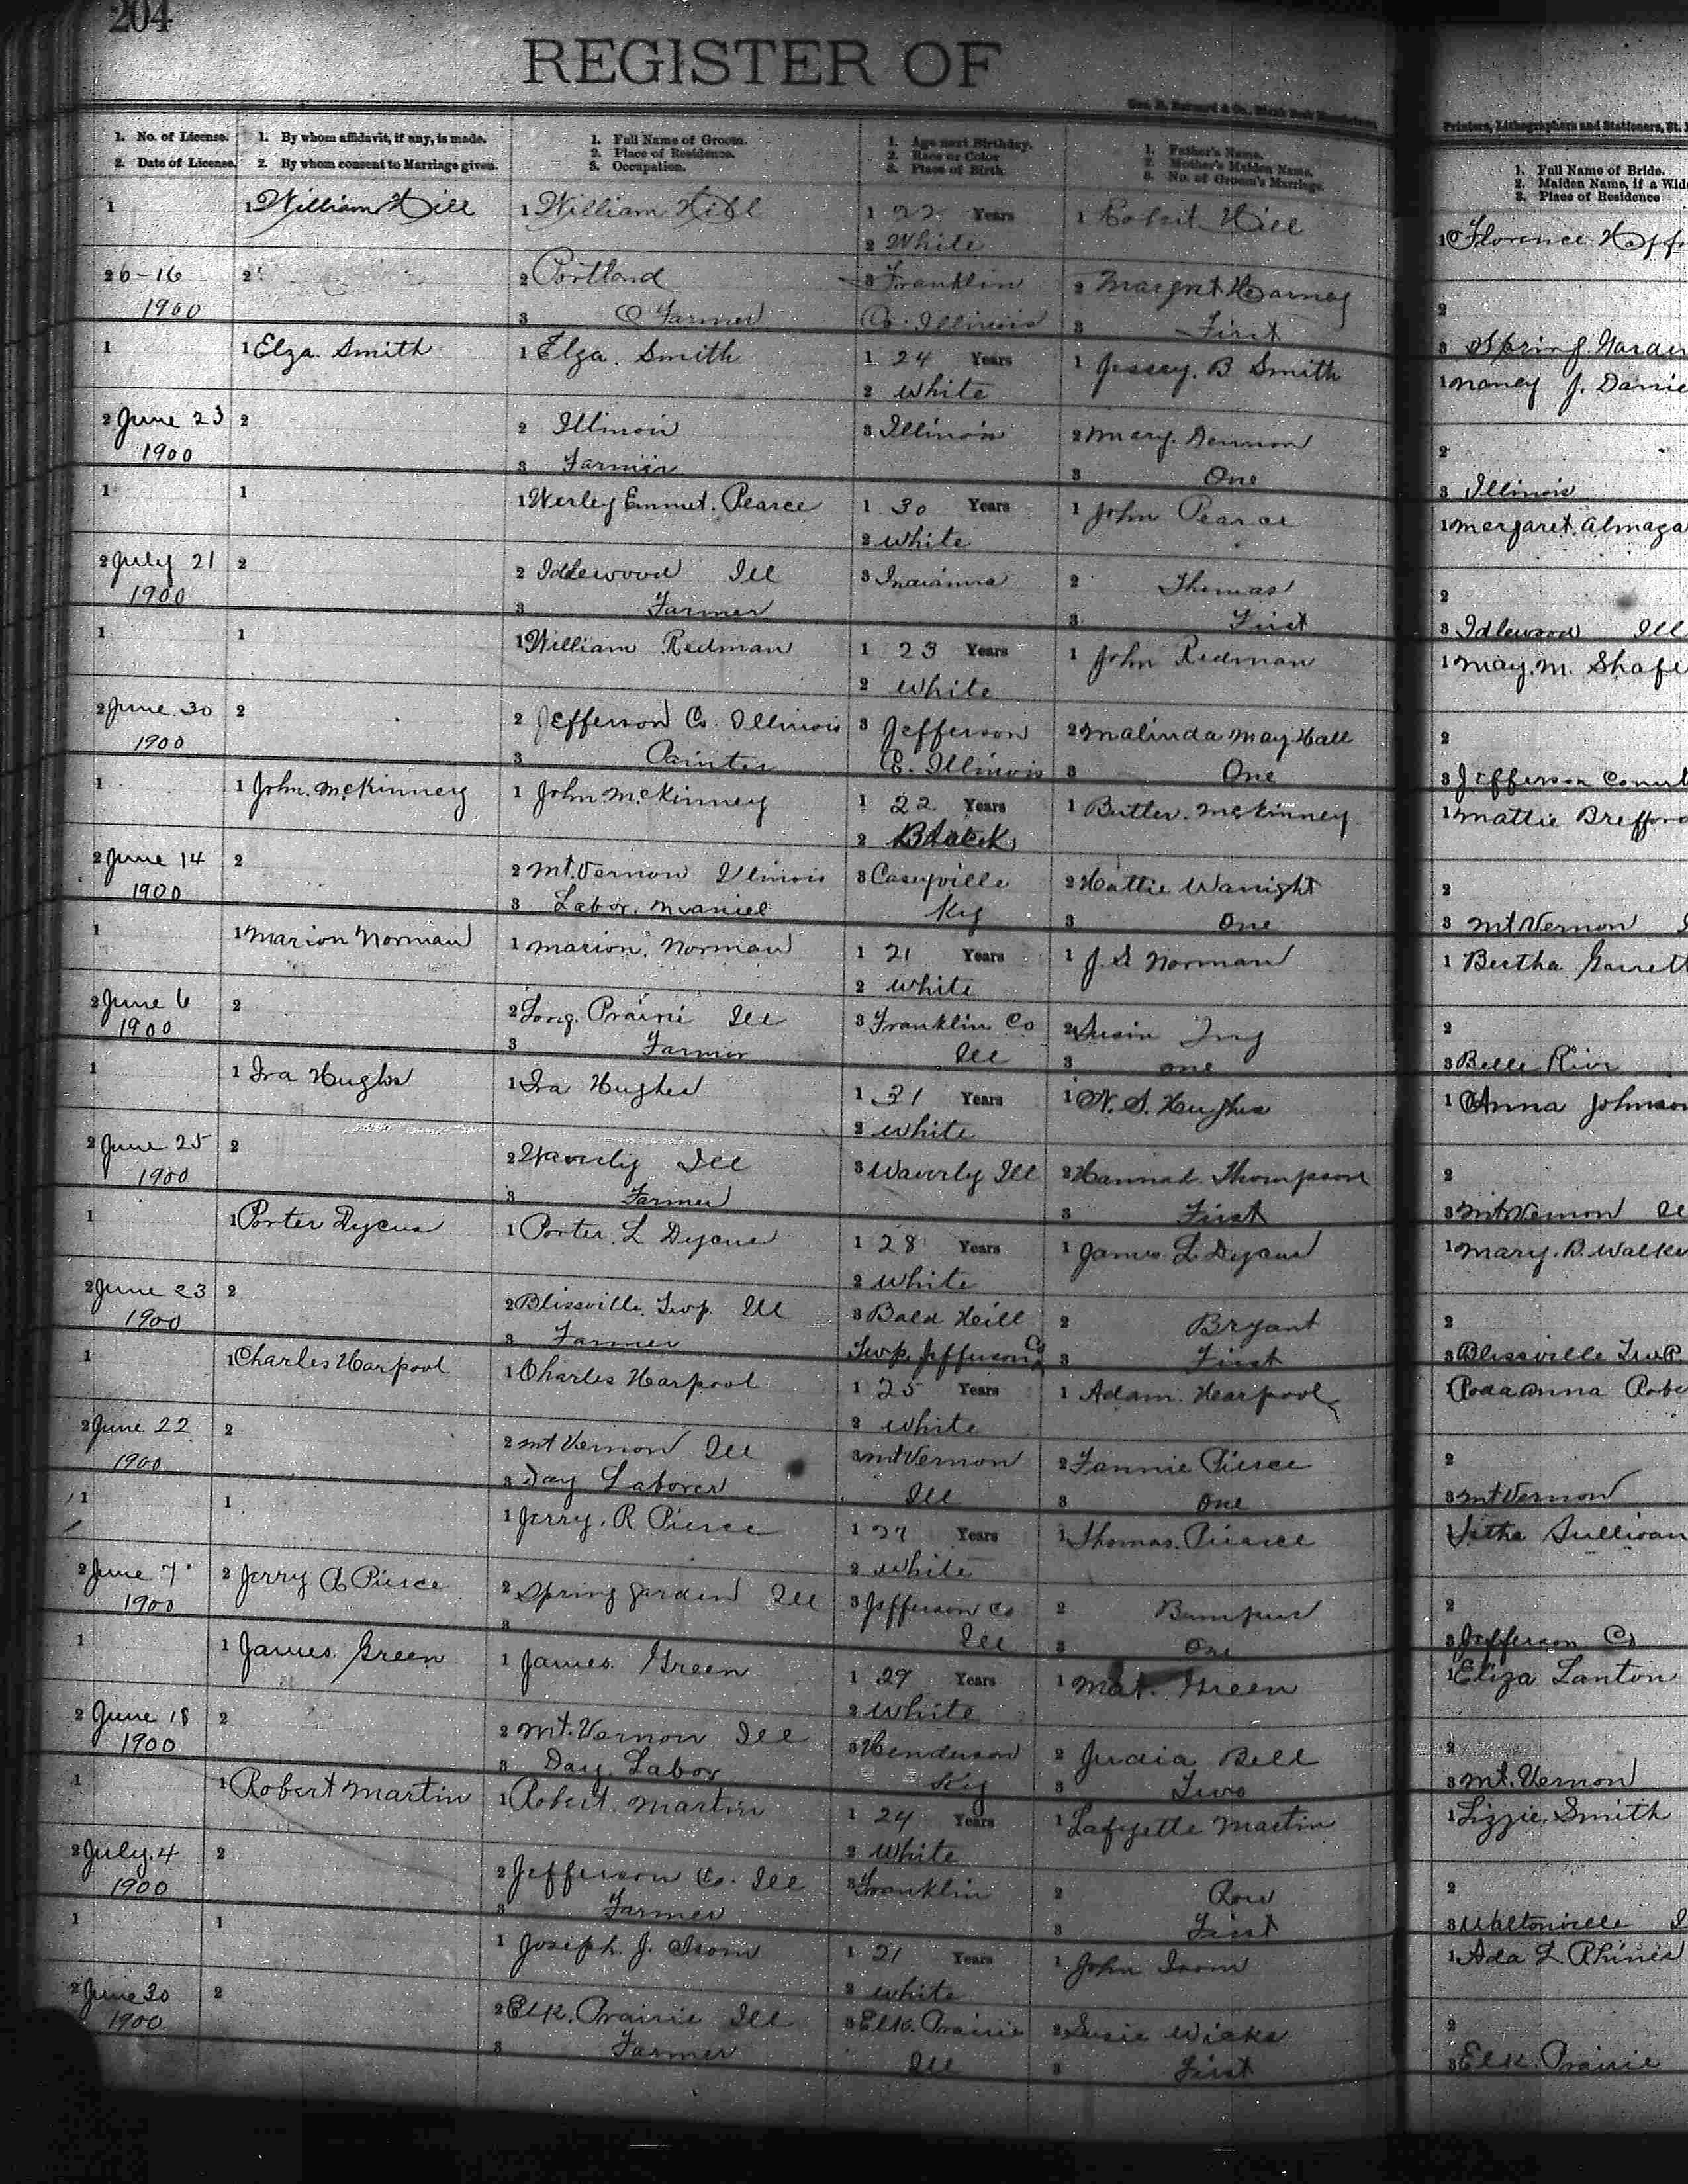 204
REGISTER OF
Printers, Lithographers and Stationers, St.
1. No. of License.
2. Date of License.
1. By whom affidavit, if any, is made.
2. By whom consent to Marriage given.
1. Full Name of Groom.
2. Place of Residence.
3. Occupation.
1. Age next Birthday.
2. Race or Color
3. Place of Birth.
1. Father's Name.
2. Mother's Maiden Name.
3. No. of Groom's Marriage.
1. Full Name of Bride.
2. Maiden Name, if a Wid
3. Place of Residence
1 1 William Hill 1 William Hill 1 22 Years 1 Robert Hill 1 Florence
2 White
2 6-16 2 2 Portland 3 Franklin 2 Margret 2
1900 3 Farmer Co. Illinois 3 First 3 Spring Garden
1 1 Elza. Smith 1 Elza. Smith 1 24 Years 1 Jessey. B Smith 1 Nancy J. Danie
2 White
2 June 23 2 2 Illinois 3 Illinois 2 Mary. Denmon 2
1900 3 Farmer 3 One 3 Illinois
1 1 1 Werley Emmet. Pearce 1 30 Years 1 John Pearce 1 Margaret. Almaga
2 White
2 July 21 2 2 Idlewood Ill 3 Indianna 2 Thomas 2
1900 3 Farmer 3 First 3 Idlewood Ill
1 1 1 William Redman 1 23 Years 1 John Redman 1 May. M. Shafe
2 White
2 June 30 2 2 Jefferson Co. Illinois 3 Jefferson 2 Malinda May Hall 2
1900 3 Painter Co. Illinois 3 One 3 Jefferson Count
1 1 John. McKinney 1 John McKinney 1 22 Years 1 Butler. McKinney 1 Mattie Brefford
2 Black
2 June 14 2 2 Mt. Vernon Illinois 3 Caseyville 2 Hattie Wanight 2
1900 3 Labor. Ky 3 One 3 Mt Vernon
1 1 Marion Norman 1 Marion. Norman 1 21 Years 1 J. S Norman 1 Bertha Garrett
2 White
2 June 6 2 2 Long. Prairie Ill 3 Franklin Co 2 Susin 2
1900 3 Farmer Ill 3 One 3 Belle Rive
1 1 Ira Hughes 1 Ira Hughes 1 31 Years 1 N. S. Hughes 1 Anna Johnson
2 White
2 June 25 2 2 Waverly Ill 3 Waverly Ill 2 Hannah. Thompson 2
1900 3 Farmer 3 First 3 Mt Vernon Ill
1 1 Porter Dycus 1 Porter. L Dycus 1 28 Years 1 James L. Dycus 1 Mary. B. Walke
2 White
2 June 23 2 2 Blissville. Twp. Ill 3 Bald Hill 2 Bryant 2
1900 3 Farmer Twp. Jefferson Co 3 First 3 Blissville Twp.
1 1 Charles Harpool 1 Charles Harpool 1 25 Years 1 Adam. Harpool 1 Roda Anna Robe
2 White
2 June 22 2 2 Mt Vernon Ill 3 Mt Vernon 2 Fannie Pierce 2
1900 3 Day Laborer Ill 3 One 3 Mt Vernon
1 1 1 Jerry. R Pierce 1 27 Years 1 Thomas. Pierce 1 Sullivan
2 White
2 June 7 2 Jerry R Pierce 2 Spring Garden Ill 3 Jefferson Co 2 Bumpus 2
1900 3 Ill 3 One 3 Jefferson Co
1 1 James. Green 1 James. Green 1 29 Years 1 Mat. Green 1 Eliza Lanton
2 White
2 June 18 2 2 Mt. Vernon Ill 3 Henderson 2 Judia Bell 2
1900 3 Day. Labor Ky 3 Two 3 Mt. Vernon
1 1 Robert Martin 1 Robert. Martin 1 24 Years 1 Lafyette Martin 1 Lizzie. Smith
2 White
2 July. 4 2 2 Jefferson Co. Ill 3 Franklin 2 Row 2
1900 3 Farmer 3 First 3 Waltonville
1 1 1 Joseph. J. Isom 1 21 Years 1 John Isom 1 Ada L. Rhines
2 White
2 June 30 2 2 Elk. Prairie Ill 3 Elk. Prairie 2 Susie Wicks 2
1900 3 Farmer Ill 3 First 3 Elk. Prairie